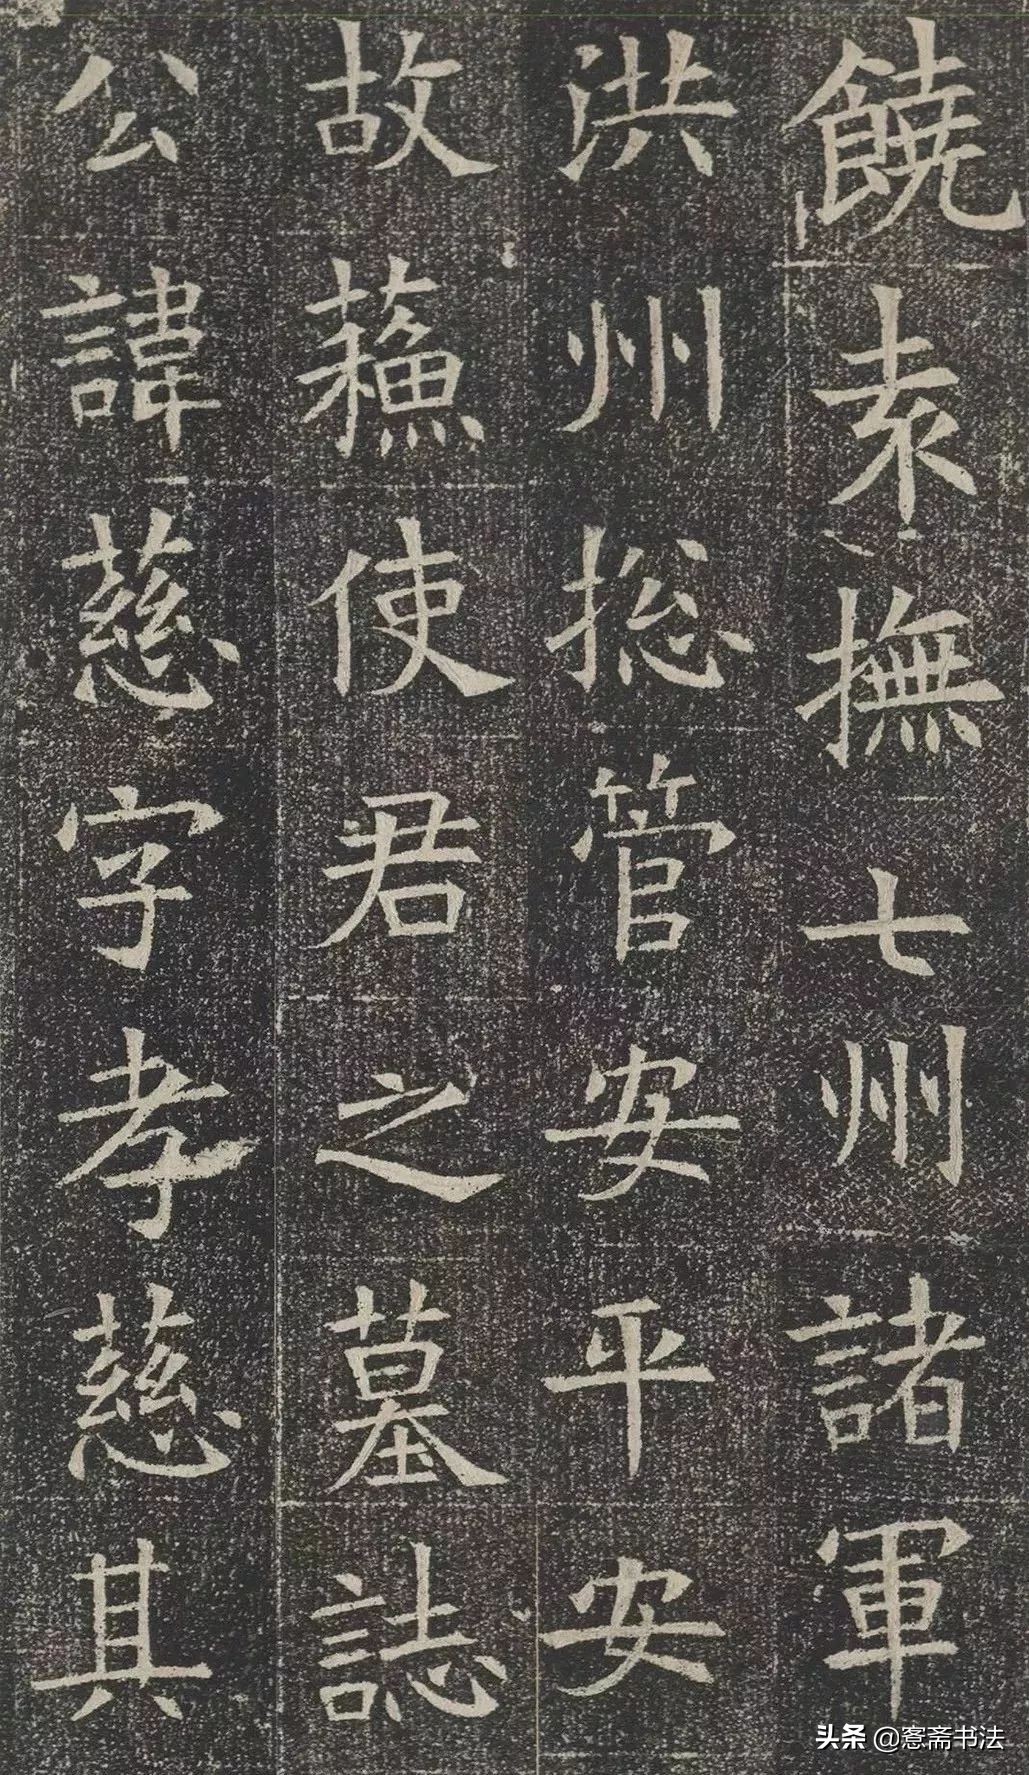 饒袁撫七州諸軍
洪州捴管安平安
故蘓使君之墓誌
公諱慈字孝慈其
头条@窓斋书法